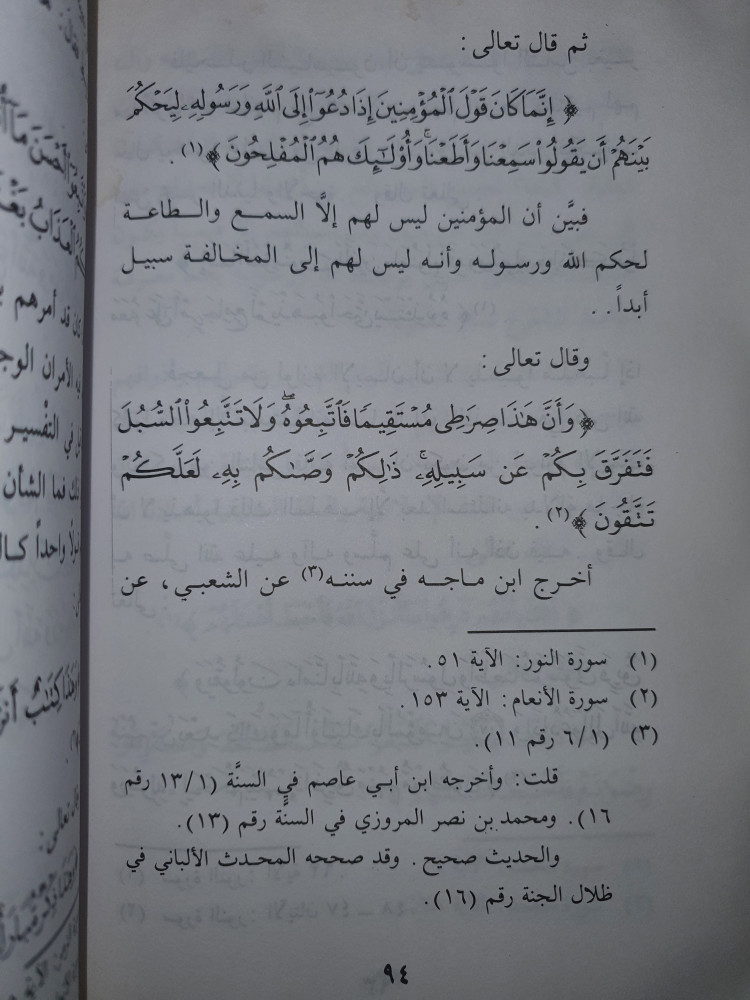 ثم قال تعالى :
﴿ إِنَّمَا كَانَ قَوْلَ الْمُؤْمِنِينَ إِذَا دُعُوٓا۟ إِلَى ٱللَّهِ وَرَسُولِهِۦ لِيَحْكُمَ
بَيْنَهُمْ أَن يَقُولُوا۟ سَمِعْنَا وَأَطَعْنَا ۚ وَأُو۟لَٰٓئِكَ هُمُ ٱلْمُفْلِحُونَ ﴾(١) .
فبيَّن أن المؤمنين ليس لهم إلَّا السمع والطاعة
لحكم الله ورسوله وأنه ليس لهم إلى المخالفة سبيل
أبداً . .
وقال تعالى :
﴿ وَأَنَّ هَٰذَا صِرَٰطِى مُسْتَقِيمًا فَٱتَّبِعُوهُ ۖ وَلَا تَتَّبِعُوا۟ ٱلسُّبُلَ
فَتَفَرَّقَ بِكُمْ عَن سَبِيلِهِۦ ۚ ذَٰلِكُمْ وَصَّىٰكُم بِهِۦ لَعَلَّكُمْ
تَتَّقُونَ ﴾(٢) .
أخرج ابن ماجه في سننه(٣) عن الشعبي ، عن
(١) سورة النور: الآية ٥١.
(٢) سورة الأنعام: الآية ١٥٣.
(٣) (٦/١ رقم ١١).
قلت: وأخرجه ابن أبي عاصم في السنَّة (١٣/١ رقم
١٦). ومحمد بن نصر المروزي في السنَّة رقم (١٣).
والحديث صحيح. وقد صححه المحدث الألباني في
ظلال الجنة رقم (١٦).
٩٤